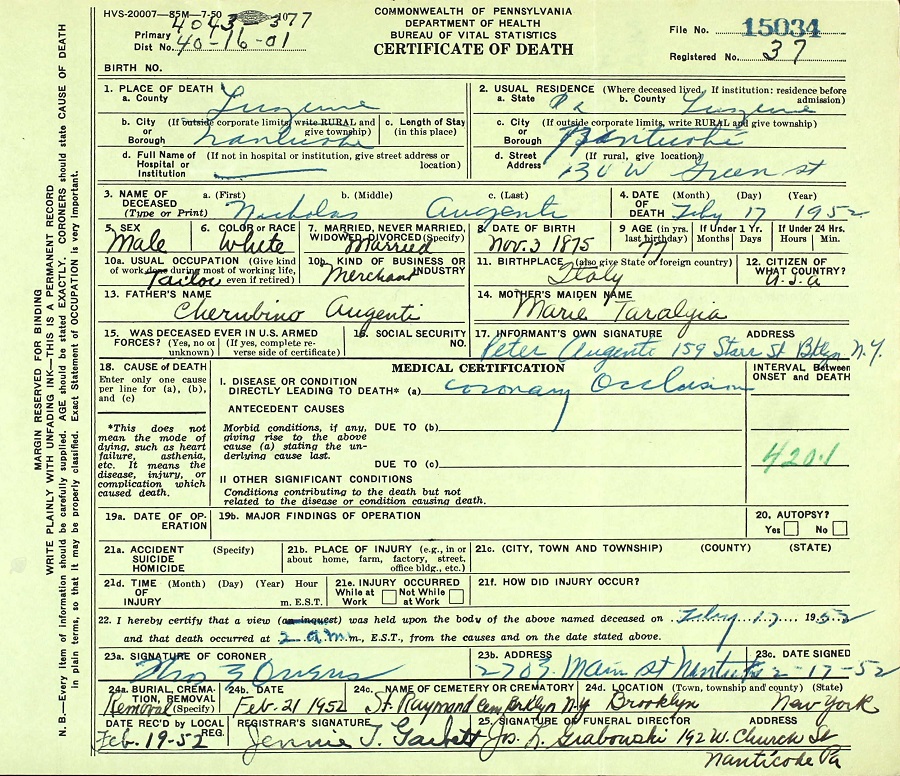 HVS-20007—85M—7-50
4043-377
Primary Dist. No. 40-16-01
COMMONWEALTH OF PENNSYLVANIA
DEPARTMENT OF HEALTH
BUREAU OF VITAL STATISTICS
CERTIFICATE OF DEATH
File No. 15034
Registered No. 37
BIRTH NO.
1. PLACE OF DEATH
a. County Luzerne
b. City or Borough (If outside corporate limits, write RURAL and give township) Nanticoke
c. Length of Stay (in this place)
d. Full Name of Hospital or Institution (If not in hospital or institution, give street address or location)
2. USUAL RESIDENCE (Where deceased lived, If institution: residence before admission)
a. State Pa b. County Luzerne
c. City or Borough (If outside corporate limits, write RURAL and give township) Nanticoke
d. Street Address (If rural, give location) 130 W Green st
3. NAME OF DECEASED (Type or Print) a. (First) b. (Middle) c. (Last)
Nicholas Augenti
4. DATE OF DEATH (Month) (Day) (Year)
Feby 17 1952
5. SEX Male
6. COLOR or RACE White
7. MARRIED, NEVER MARRIED, WIDOWED, DIVORCED (Specify) Married
8. DATE OF BIRTH Nov. 3 1875
9 AGE (in yrs. last birthday) 77
If Under 1 Yr. Months Days
If Under 24 Hrs. Hours Min.
10a. USUAL OCCUPATION (Give kind of work done during most of working life, even if retired) Tailor
10b. KIND OF BUSINESS OR INDUSTRY Merchant
11. BIRTHPLACE (also give State or foreign country) Italy
12. CITIZEN OF WHAT COUNTRY? U.S.A
13. FATHER'S NAME
Cherubino Augenti
14. MOTHER'S MAIDEN NAME
Marie Taralgia
15. WAS DECEASED EVER IN U.S. ARMED FORCES? (Yes, no or unknown) (If yes, complete reverse side of certificate)
16. SOCIAL SECURITY NO.
17. INFORMANT'S OWN SIGNATURE ADDRESS
Peter Augenti 159 Starr St Bklyn N.Y.
18. CAUSE OF DEATH
Enter only one cause per line for (a), (b), and (c)
*This does not mean the mode of dying, such as heart failure, asthenia, etc. It means the disease, injury, or complication which caused death.
MEDICAL CERTIFICATION
INTERVAL Between ONSET and DEATH
I. DISEASE OR CONDITION DIRECTLY LEADING TO DEATH* (a) Coronary Occlusion
ANTECEDENT CAUSES
Morbid conditions, if any, giving rise to the above cause (a) stating the underlying cause last.
DUE TO (b)
DUE TO (c)
420.1
II OTHER SIGNIFICANT CONDITIONS
Conditions contributing to the death but not related to the disease or condition causing death.
19a. DATE OF OPERATION
19b. MAJOR FINDINGS OF OPERATION
20. AUTOPSY?
Yes No
21a. ACCIDENT SUICIDE HOMICIDE (Specify)
21b. PLACE OF INJURY (e.g., in or about home, farm, factory, street, office bldg., etc.)
21c. (CITY, TOWN AND TOWNSHIP) (COUNTY) (STATE)
21d. TIME OF INJURY (Month) (Day) (Year) Hour m. E.S.T.
21e. INJURY OCCURRED While at Work Not While at Work
21f. HOW DID INJURY OCCUR?
22. I hereby certify that a view (an inquest) was held upon the body of the above named deceased on Feby 17 1952
and that death occurred at 2 a.m. m., E.S.T., from the causes and on the date stated above.
23a. SIGNATURE OF CORONER
23b. ADDRESS 270 S. Main st Nanticoke
23c. DATE SIGNED 2-17-52
24a. BURIAL, CREMATION, REMOVAL (Specify) Removal
24b. DATE Feb. 21 1952
24c. NAME OF CEMETERY OR CREMATORY St. Raymond Cem. Brklyn N.Y.
24d. LOCATION (Town, township and county) (State) Brooklyn New York
DATE REC'D BY LOCAL REG. Feb. 19-52
REGISTRAR'S SIGNATURE Jennie T. Garbett
25. SIGNATURE OF FUNERAL DIRECTOR ADDRESS
Jos. L. Grabowski 192 W. Church St
Nanticoke Pa
MARGIN RESERVED FOR BINDING
WRITE PLAINLY WITH UNFADING INK—THIS IS A PERMANENT RECORD
N. B.—Every item of information should be carefully supplied. AGE should be stated EXACTLY. CORONERS should state CAUSE OF DEATH
in plain terms, so that it may be properly classified. Exact Statement of OCCUPATION is very important.